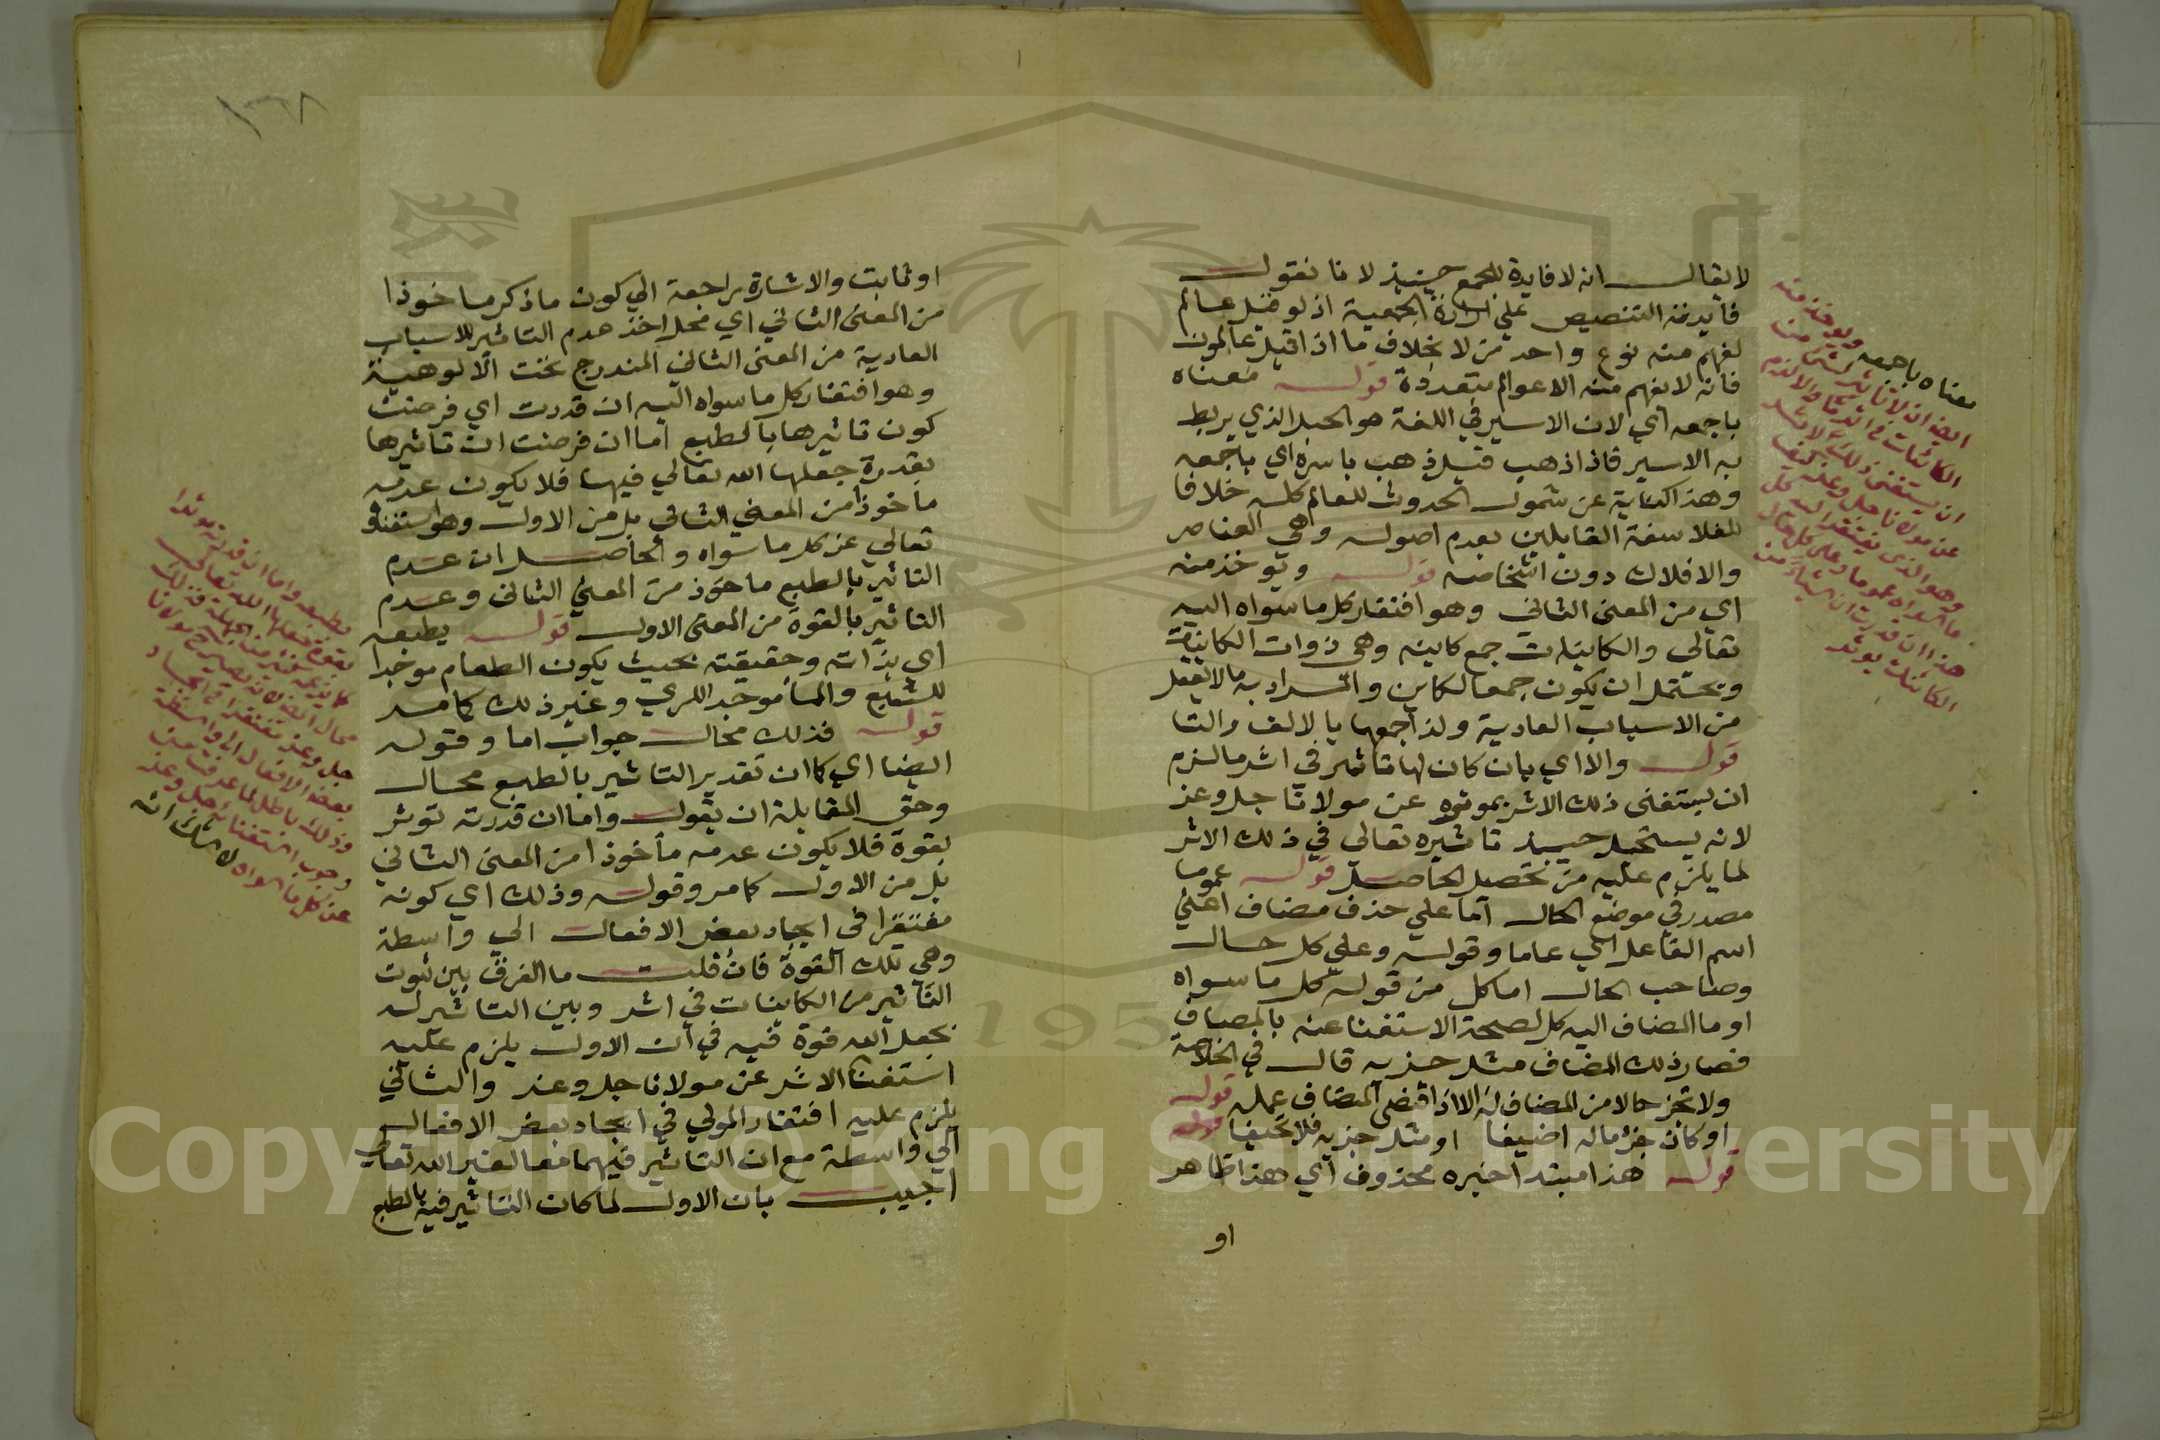 لا يقال انه لا فايدة للجمع حينيذ لا نا نقول
فايدته التنصيص علي ارادة الجمعية اذ لو قيل عالم
لفهم منه نوع واحد من لا بخلاف ما اذا قيل عالمون
فانه لا يفهم منه الا عوالم متعددة قوله معناه
باجمعه اي لان الاسير في اللغة هو الحبل الذي يربط
به الاسير فاذا ذهب قيل ذهب باسره اي باجمعه
وهذا كناية عن شمول الحدوث للعالم كله خلافا
للفلاسفة القايلين بعدم اصوله وهي العناصر
والافلاك دون اشخاصه قوله ويوخذ منه
اي من المعنى الثاني وهو افتقار كل ما سواه اليه
تعالى والكاينات جمع كاينه وهي ذوات الكاينة
ويحتمل ان يكون جمعا لكاين والمراد به ما لا يعقل
من الاسباب العادية ولذا جمعها بالالف والتا
قوله والا اي بان كان لها تاثير في اثر ما لزم
ان يستغنى ذلك الاثر بموثره عن مولانا جل وعز
لانه يستحيل حينيذ تاثيره تعالى في ذلك الاثر
لما يلزم عليه من تحصيل الحاصل قوله عموما
مصدر في موضع الحال اما علي حذف مضاف اعني
اسم الفاعل اي عاما وقوله وعلى كل حال
وصاحب الحال اما كل من قوله كل ما سواه
او ما المضاف اليه كل لصحة الاستغنا عنه بالمضاف
فصار ذلك المضاف مثل جزيه قال في الخلاصة
ولا تجز حالا من المضاف له الا اذا اقتضى المضاف عمله قوله
او كان جزء ماله اضيفا او مثل جزيه فلا تحيفا قوله
قوله هذا مبتدا خبره محذوف اي هذا ظاهر
او
معناه باجمعه ويوخذ منه
ايضا ان لا تاثير لشي من
الكاينات في اثر ما والا لزم
ان يستغني ذلك الاثر
عن مولانا جل وعز كيف
وهو الذي يفتقر اليه كل
ما سواه عموما وعلى كل حال
هذا ان قدرت ان شيا من
الكاينات يوثر
١٣٨
او ثابت والاشارة راجعة الي كون ما ذكر ماخوذا
من المعنى الثاني اي محل اخذ عدم التاثير للاسباب
العادية من المعنى الثاني المندرج تحت الالوهية
وهو افتقار كل ما سواه اليه ان قدرت اي فرضت
كون تاثيرها بالطبع اما ان فرضت ان تاثيرها
بقدرة جعلها الله تعالي فيها فلا يكون عدمه
ماخوذا من المعنى الثاني بل من الاول وهو استغناؤه
تعالي عن كل ما سواه والحاصل ان عدم
التاثير بالطبع ماخوذ من المعنى الثاني وعدم
التاثير بالقوة من المعنى الاول قوله بطبعه
اي بذاته وحقيقته بحيث يكون الطعام موجدا
للشبع والما موجد اللري وغير ذلك كما مر
قوله فذلك محال جواب اما وقوله
ايضا اي كما ان تقدير التاثير بالطبع محال
وحق المقابلة ان يقول واما ان قدرته توثر
بقوة فلا يكون عدمه ماخوذا من المعنى الثاني
بل من الاول كما مر وقوله وذلك اي كونه
مفتقرا في ايجاد بعض الافعال الي واسطة
وهي تلك القوة فان قلت ما الفرق بين ثبوت
التاثير من الكاينات في اثر وبين التاثير له
بجعل الله قوة فيه في ان الاول يلزم عليه
استغنا الاثر عن مولانا جل وعز والثاني
يلزم عليه افتقار المولي في ايجاد بعض الافعال
الي واسطة مع ان التاثير فيهما معا لغير الله تعالي
اجيب بان الاول لما كان التاثير فيه بالطبع
بطبعه واما ان قدرته موثرا
بقوة جعلها الله تعالى
محال ايضا لانه يصير ح مولانا
جل وعز مفتقرا في ايجاد
بعض الافعال الى واسطة
وذلك باطل لما عرفت من
وجوب استغنايه جل وعز
عن كل ما سواه لا شك انه
Copyright © King Saud University
1957